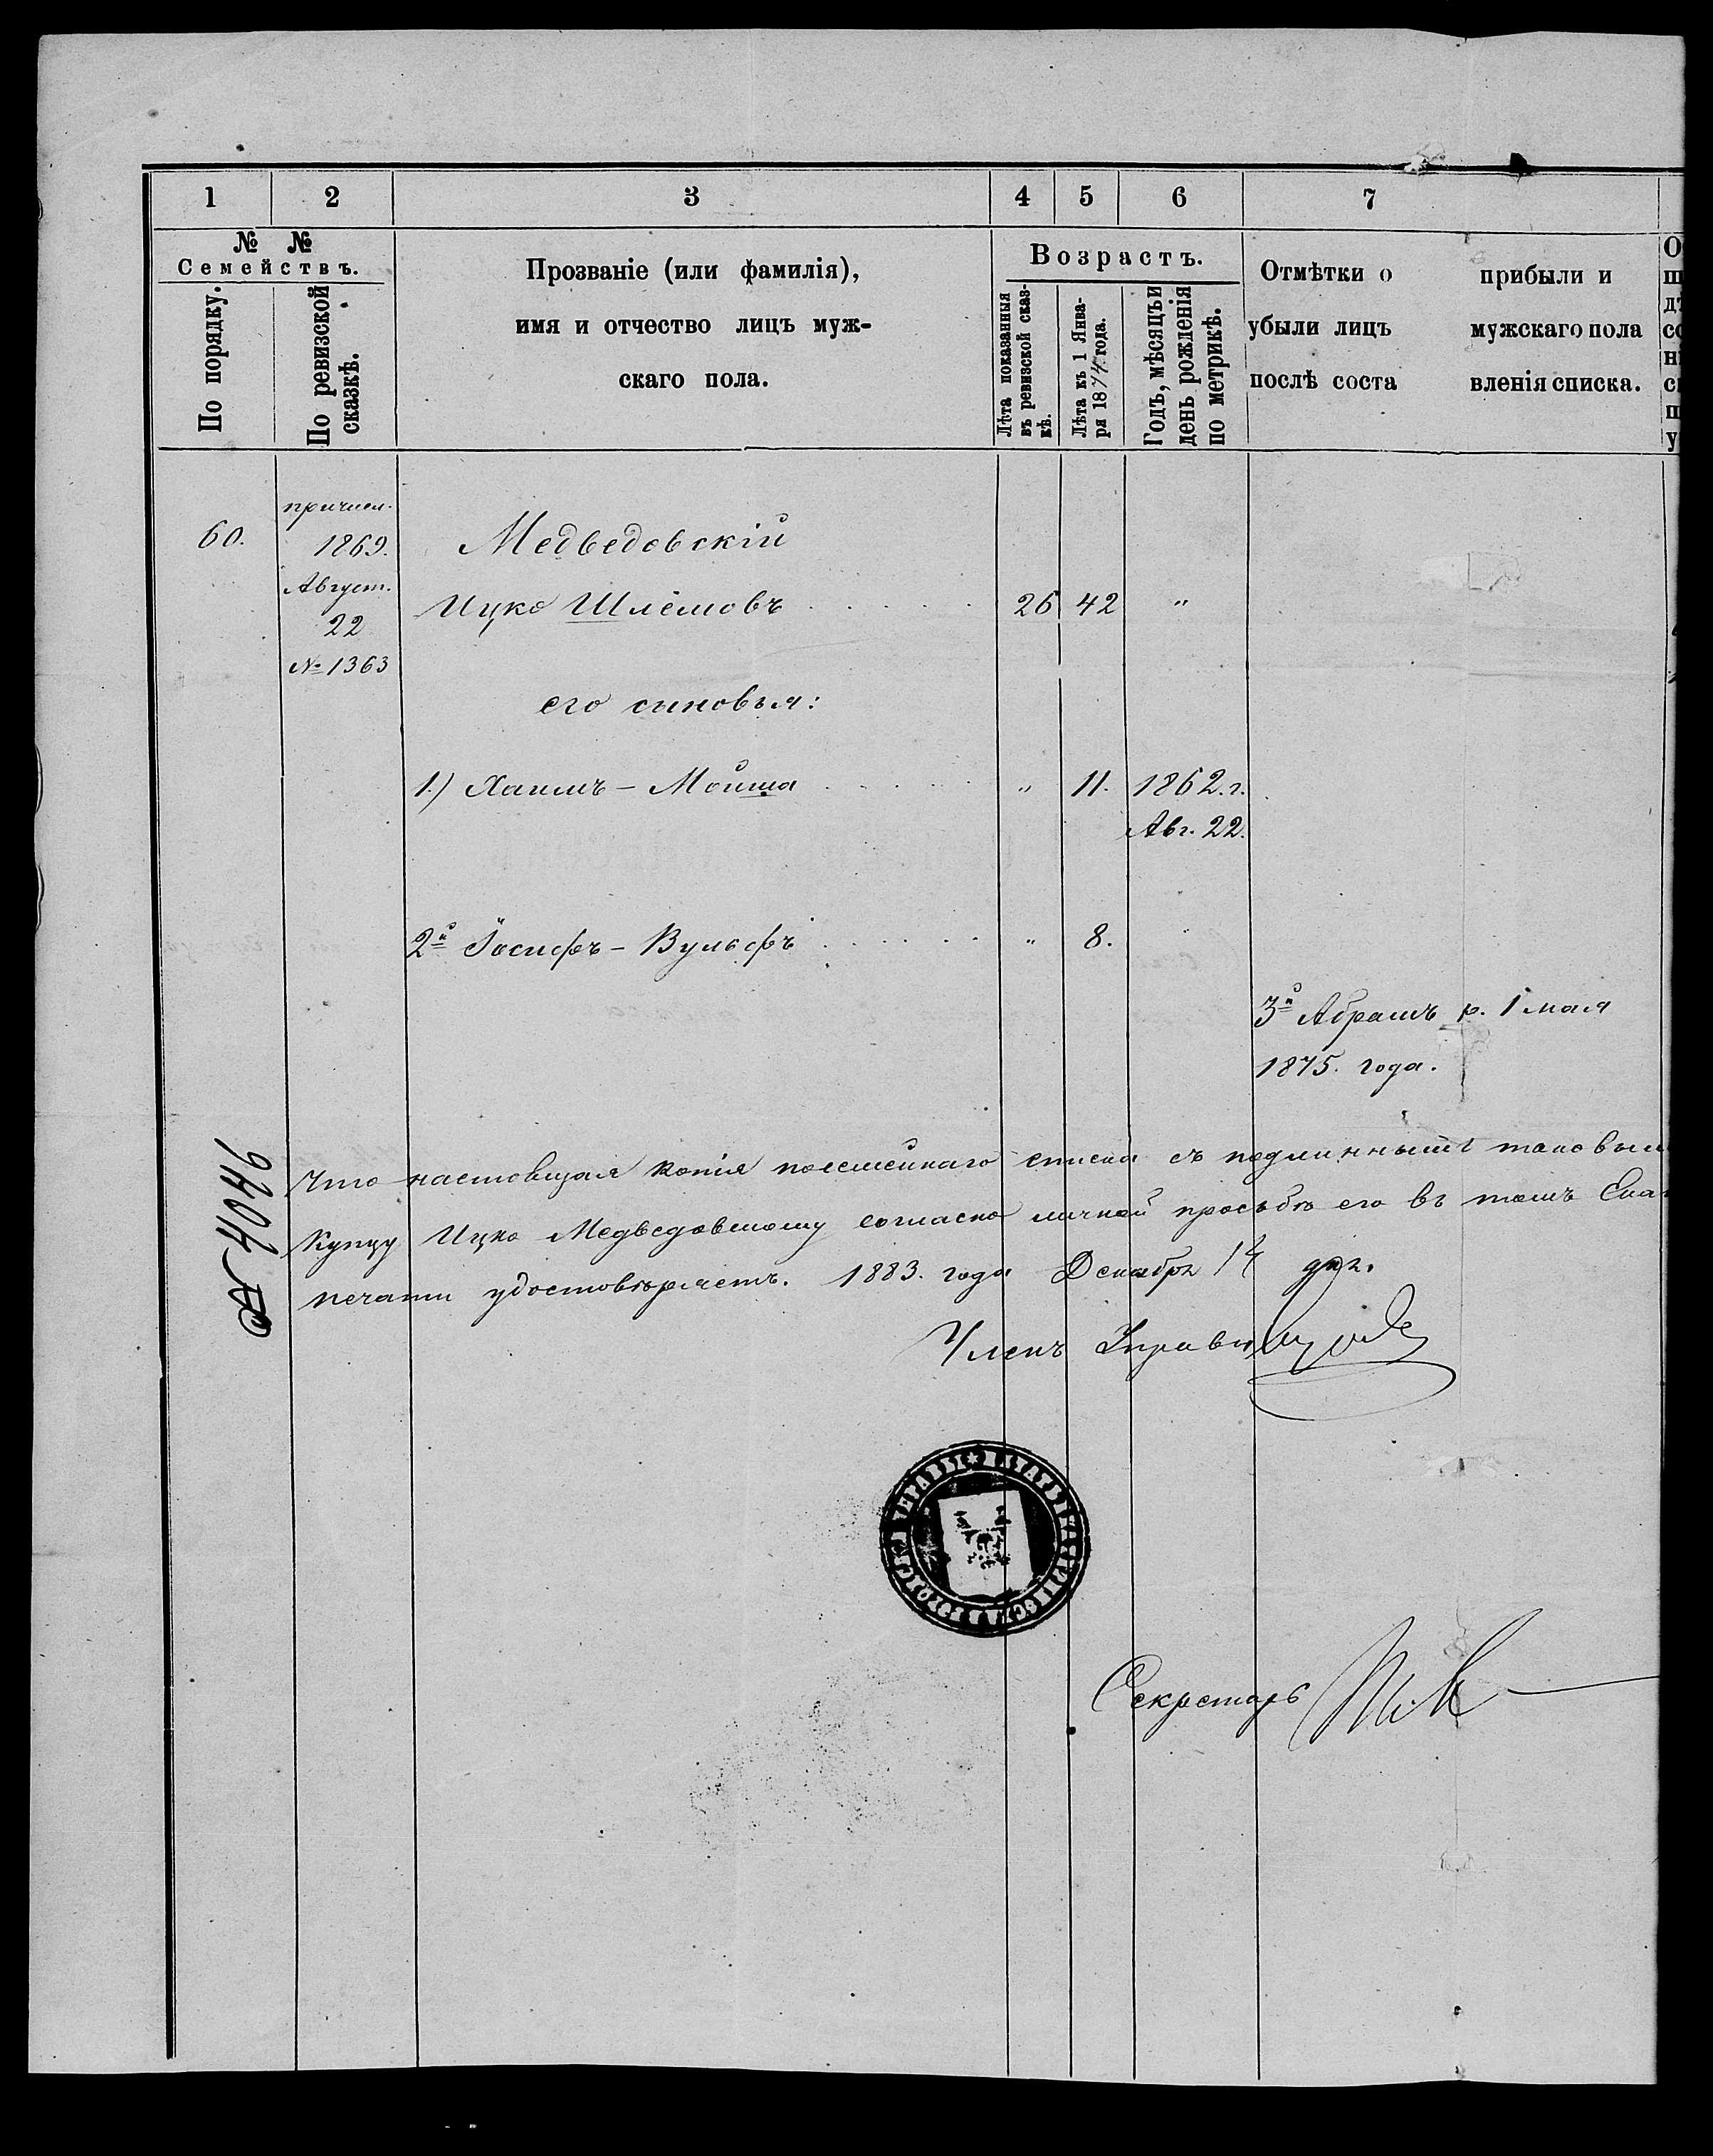 1 2 3 4 5 6 7
№ №
Семействъ.
По порядку.
По ревизской
сказкѣ.
Прозваніе (или фамилія),
имя и отчество лицъ муж-
скаго пола.
Возрастъ.
Лѣта показанныя
въ ревизской сказ-
кѣ.
Лѣта къ 1 Янва-
ря 1874 года.
Годъ, мѣсяцъ и
день рожденія
по метрикѣ.
Отмѣтки о прибыли и
убыли лицъ мужскаго пола
послѣ соста вленія списка.
60.
причисл.
1869.
Август.
22
№ 1363
Медведовскій
Ицко Шлёмовъ 26 42 "
его сыновья:
1.) Хаимъ - Мойша " 11. 1862. г.
Авг. 22.
2й Іосифъ - Вульфъ " 8.
3й Абрамъ р. 1 мая
1875. года.
4046
Что настоящая копія посемейнаго списка съ подлиннымъ таковым
Купцу Ицко Медведовскому согласно личной просьбѣ его въ томъ Ека
печати удостовѣряетъ. 1883. года Декабря 14 дня.
Членъ Управы
Секретарь